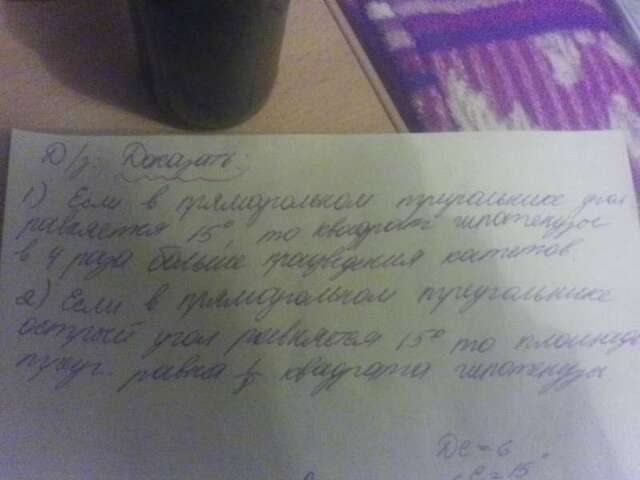 Д/з: Доказать:
1) Если в прямоугольном треугольнике угол
равняется 15°, то квадрат гипотенузы
в 4 раза больше произведения катетов.
2) Если в прямоугольном треугольнике
острый угол равняется 15° то площадь
равна 1/8 квадрата гипотенузы
DC = 6
= 15°